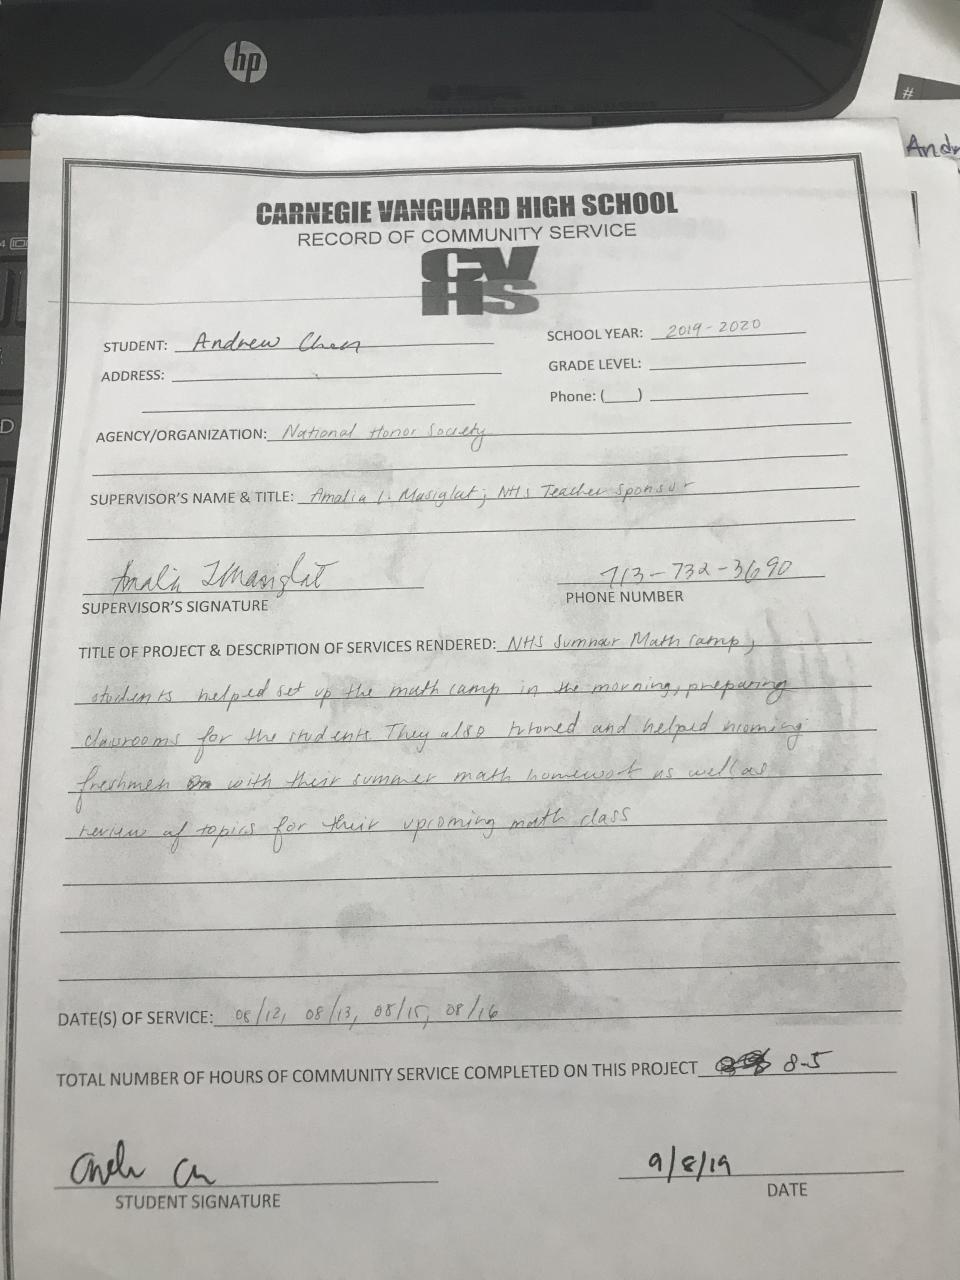 hp
#
Andr
CARNEGIE VANGUARD HIGH SCHOOL
RECORD OF COMMUNITY SERVICE
CV
HS
STUDENT: Andrew Chen
SCHOOL YEAR: 2019-2020
ADDRESS:
GRADE LEVEL:
Phone: (___)
AGENCY/ORGANIZATION: National Honor Society
SUPERVISOR'S NAME & TITLE: Amalia L. Masiglat; NHS Teacher Sponsor
Amalia LMasiglat
713-732-3690
SUPERVISOR'S SIGNATURE
PHONE NUMBER
TITLE OF PROJECT & DESCRIPTION OF SERVICES RENDERED: NHS Summer Math Camp;
students helped set up the math camp in the morning, preparing
classrooms for the students. They also tutored and helped incoming
freshmen with their summer math homework as well as
review of topics for their upcoming math class
DATE(S) OF SERVICE: 08/12, 08/13, 08/15, 08/16
TOTAL NUMBER OF HOURS OF COMMUNITY SERVICE COMPLETED ON THIS PROJECT 8.5
9/8/19
STUDENT SIGNATURE
DATE